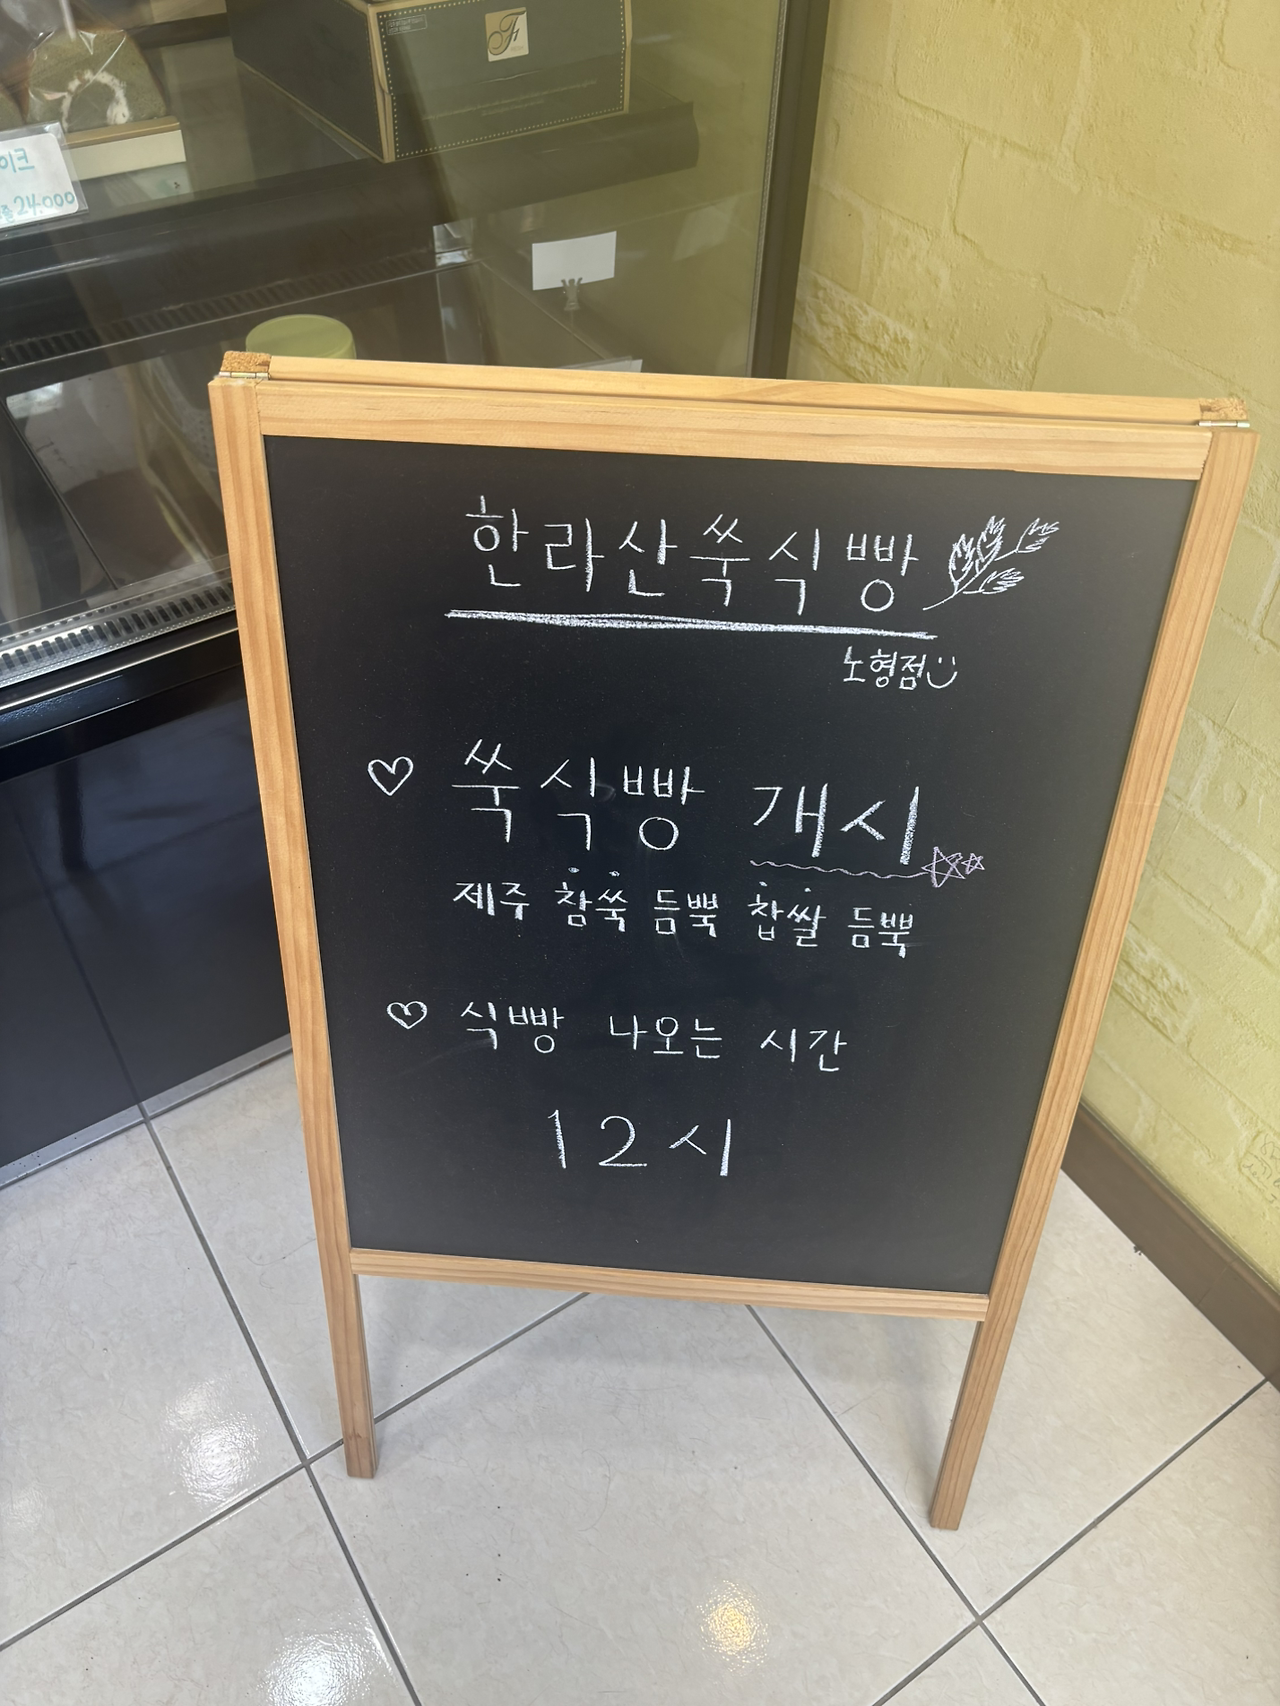 이크
24.000
한라산쑥식빵
노형점
쑥식빵 개시
제주 참쑥 듬뿍 찹쌀 듬뿍
식빵 나오는 시간
12시